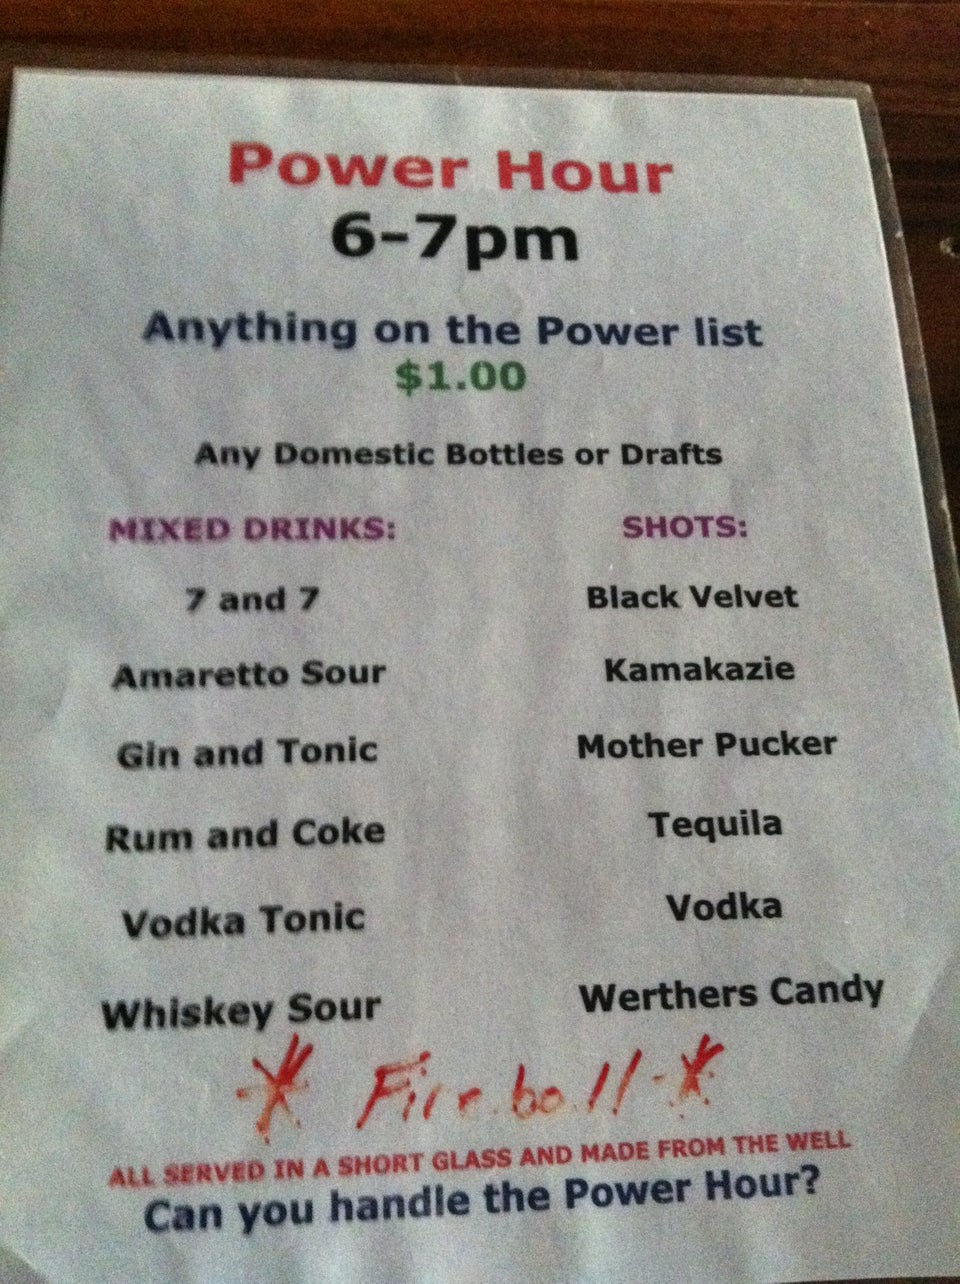 Power Hour
6-7pm
Anything on the Power list
$1.00
Any Domestic Bottles or Drafts
MIXED DRINKS:
7 and 7
Amaretto Sour
Gin and Tonic
Rum and Coke
Vodka Tonic
Whiskey Sour
SHOTS:
Black Velvet
Kamakazie
Mother Pucker
Tequila
Vodka
Werthers Candy
* Fireball *
ALL SERVED IN A SHORT GLASS AND MADE FROM THE WELL
Can you handle the Power Hour?